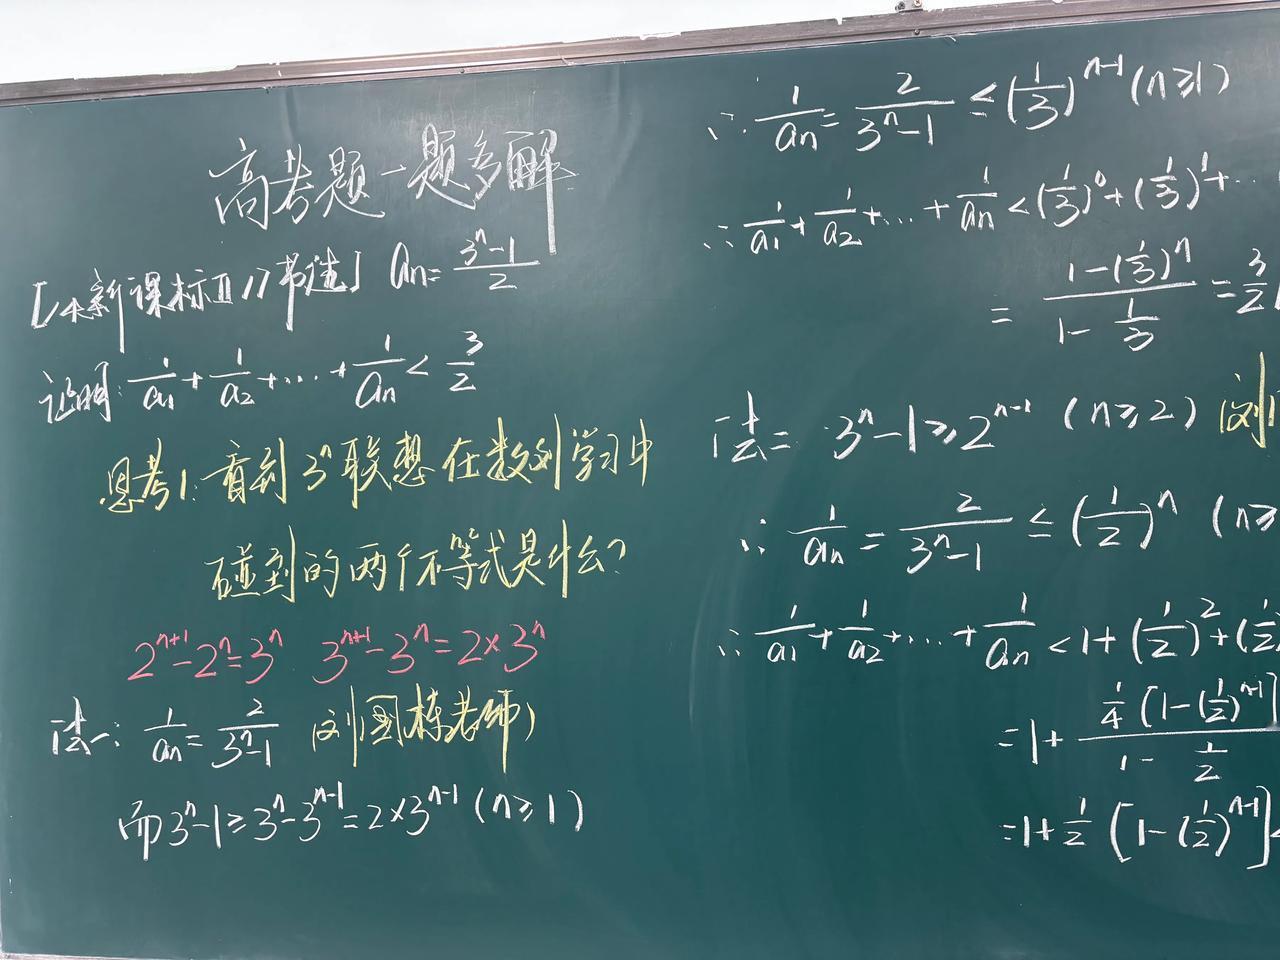 高考题一题多解
[14新课标Ⅱ17节选] an=(3^n-1)/2
证明: 1/a1+1/a2+…+1/an<3/2
思考1:看到3^n联想在数列学习中
碰到的两个不等式是什么?
2^(n+1)-2^n=3^n 3^(n+1)-3^n=2×3^n
法一: 1/an=2/(3^n-1) (刘国栋老师)
而3^n-1≥3^n-3^(n-1)=2×3^(n-1) (n≥1)
∴ 1/an=2/(3^n-1)≤(1/3)^(n-1) (n≥1)
∴ 1/a1+1/a2+…+1/an<(1/3)^0+(1/3)^1+…
=(1-(1/3)^n)/(1-1/3)=3/2
法二 3^n-1≥2^(n-1) (n≥2) (刘
∴ 1/an=2/(3^n-1)≤(1/2)^n (n≥
∴ 1/a1+1/a2+…+1/an<1+(1/2)^2+(1/2)
=1+(1/4[1-(1/2)^(n-1)])/(1-1/2)
=1+1/2[1-(1/2)^(n-1)]<